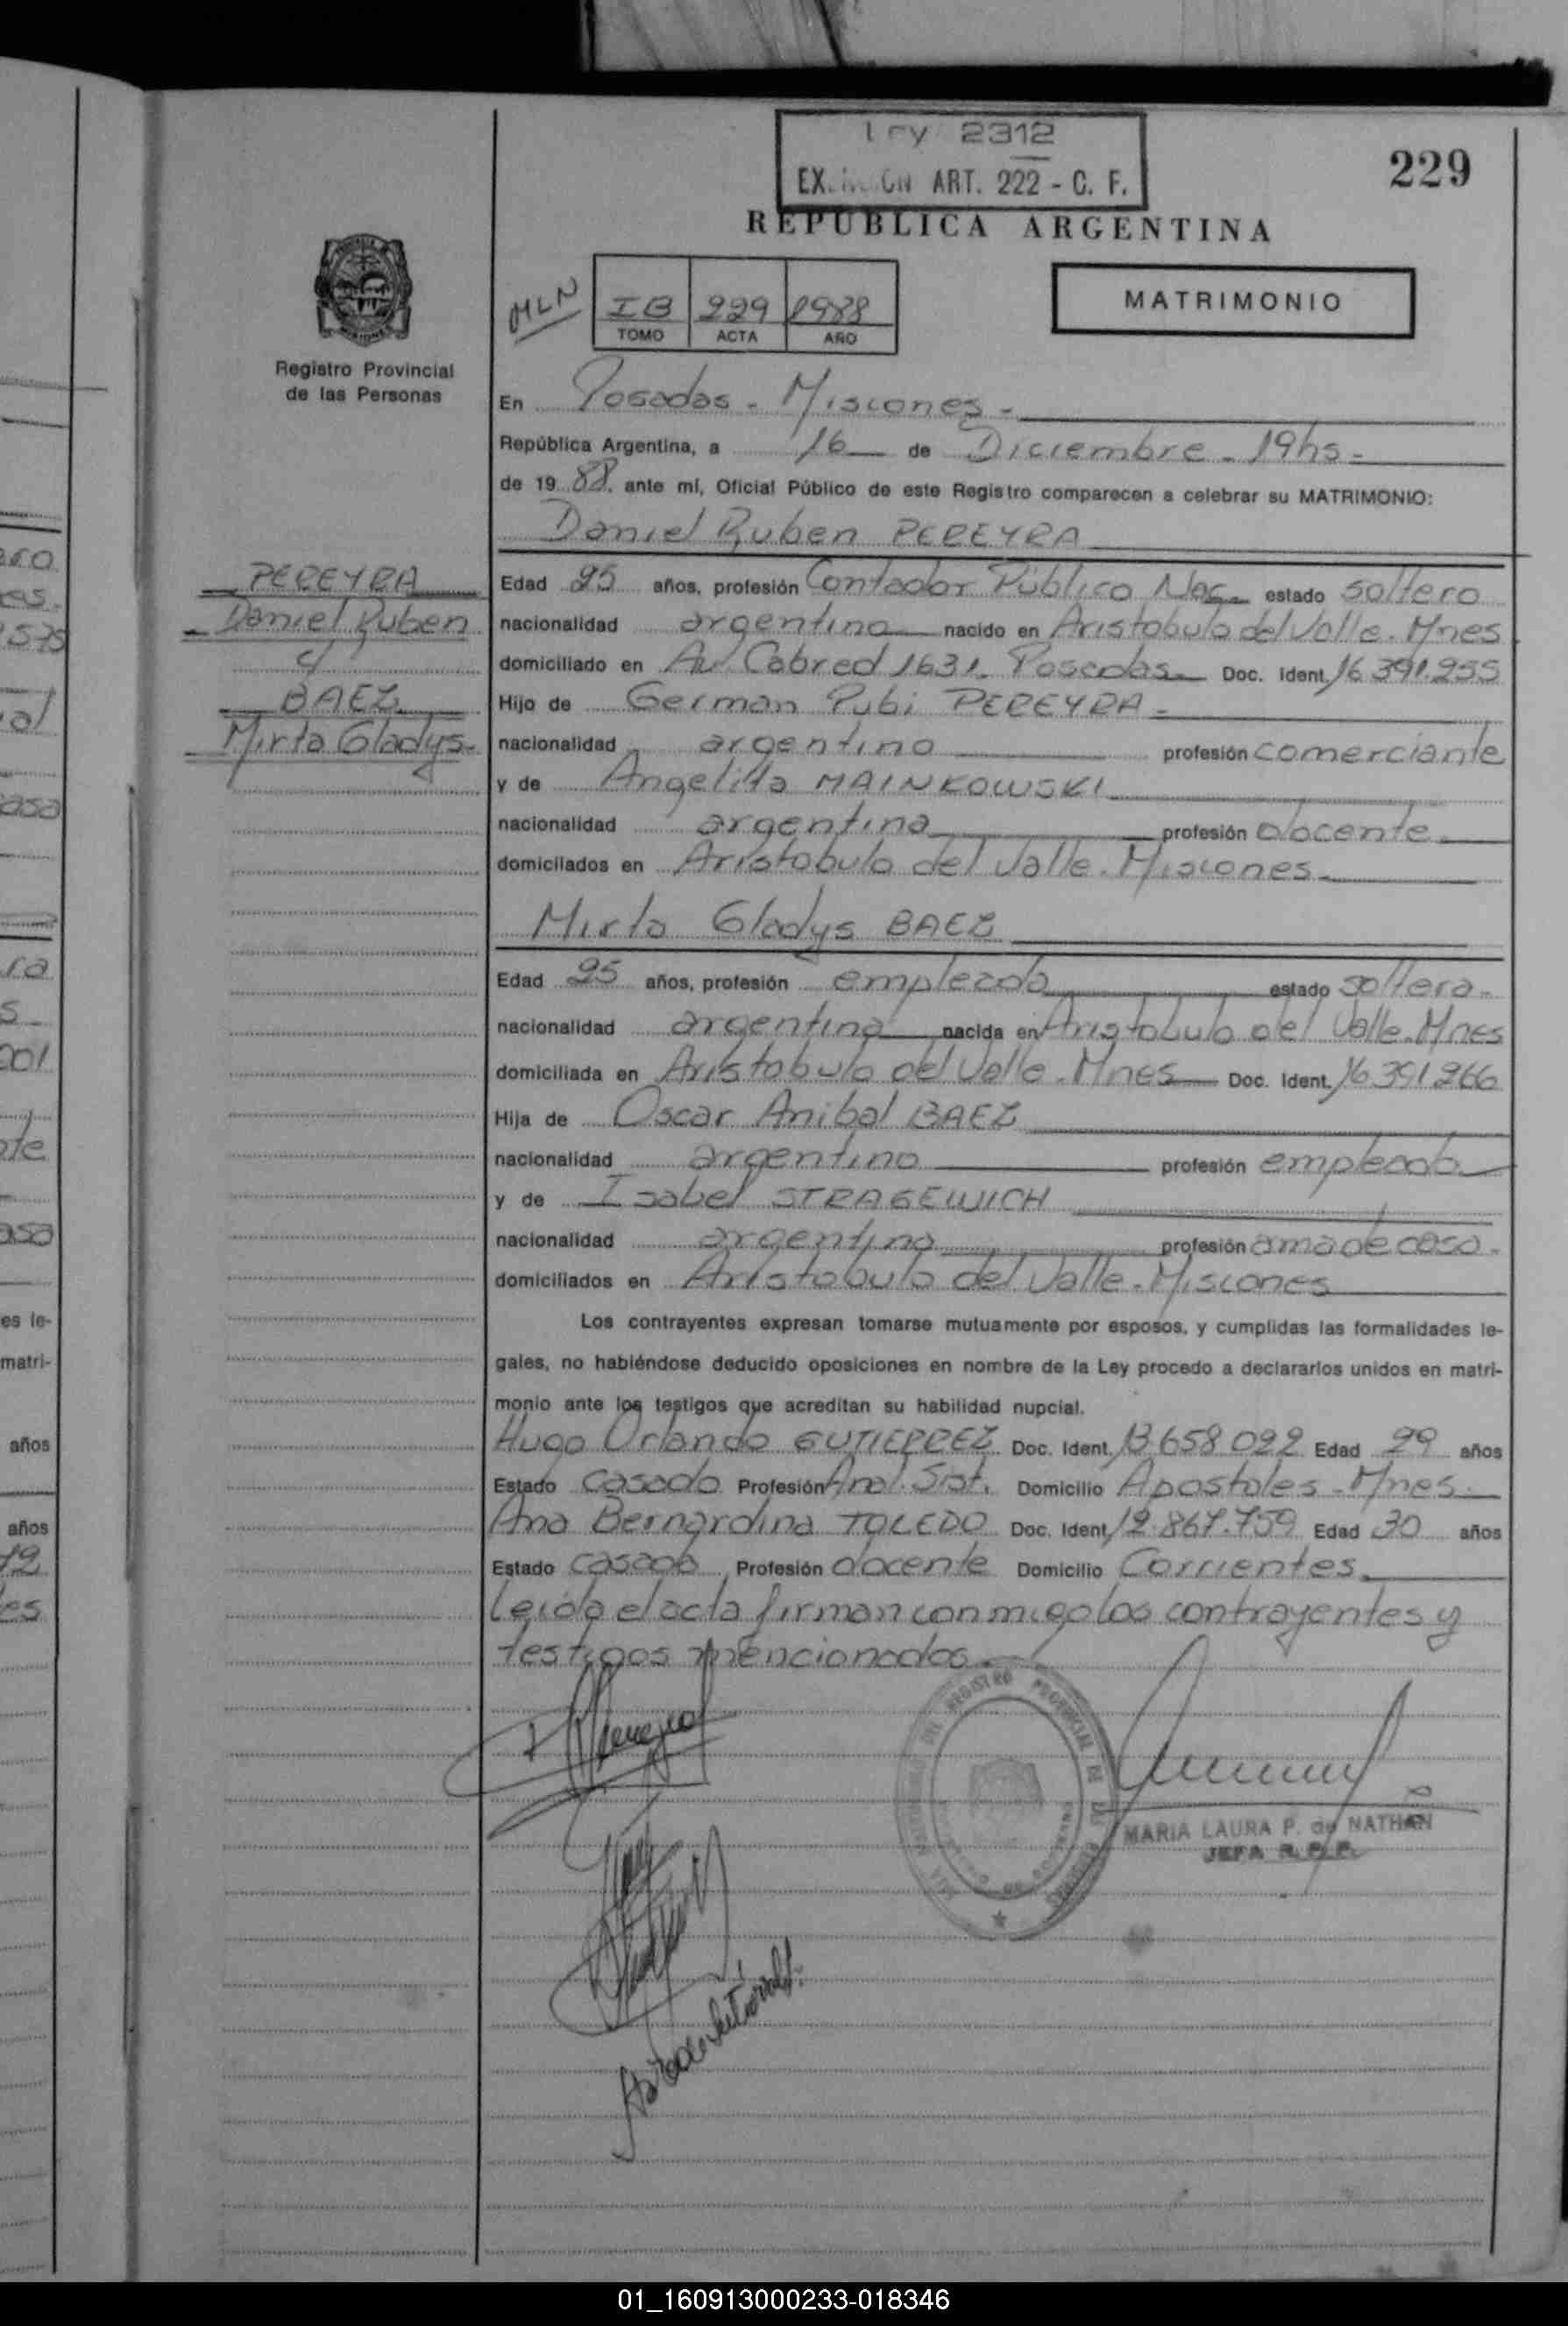 Ley 2312
ART. 222 - C. F.
229
REPUBLICA ARGENTINA
MLN
IB 229 1988
TOMO ACTA AÑO
MATRIMONIO
Registro Provincial
de las Personas
En Posadas - Misiones -
República Argentina, a 16 de Diciembre - 19hs -
de 19 88 ante mí, Oficial Público de este Registro comparecen a celebrar su MATRIMONIO:
Daniel Ruben PEREYRA
PEREYRA
Daniel Ruben
c/
BAEZ
Mirta Gladys-
Edad 25 años, profesión Contador Público Nac. estado soltero
nacionalidad argentina nacido en Aristobulo del Valle. Mnes
domiciliado en Av. Cabred 1631. Posadas Doc. Ident. 16 391.255
Hijo de German Rubi PEREYRA -
nacionalidad argentino profesión comerciante
y de Angelita MAINKOWSKI
nacionalidad argentina profesión docente
domicilados en Aristobulo del Valle. Misiones
Mirta Gladys BAEZ
Edad 25 años, profesión empleada estado soltera-
nacionalidad argentina nacida en Aristobulo del Valle. Mnes
domiciliada en Aristobulo del Valle. Mnes Doc. Ident. 16 391 266
Hija de Oscar Anibal BAEZ
nacionalidad argentino profesión empleado
y de Isabel STRAGEWICH
nacionalidad argentina profesión ama de casa -
domiciliados en Aristobulo del Valle. Misiones
Los contrayentes expresan tomarse mutuamente por esposos, y cumplidas las formalidades le-
gales, no habiéndose deducido oposiciones en nombre de la Ley procedo a declararlos unidos en matri-
monio ante los testigos que acreditan su habilidad nupcial.
Hugo Orlando GUTIERREZ Doc. Ident. 13 658 022 Edad 29 años
Estado casado Profesión Anal. Sist. Domicilio Apostoles - Mnes.
Ana Bernardina TOLEDO Doc. Ident. 12.867.759 Edad 30 años
Estado casada Profesión docente Domicilio Corrientes
Leida el acta firman conmigo los contrayentes y
testigos mencionados
REGISTRO PROVINCIAL DE LAS PERSONAS
MARIA LAURA P. de NATHAN
JEFA R. P. P.
es le-
matri-
años
años
01_160913000233-018346